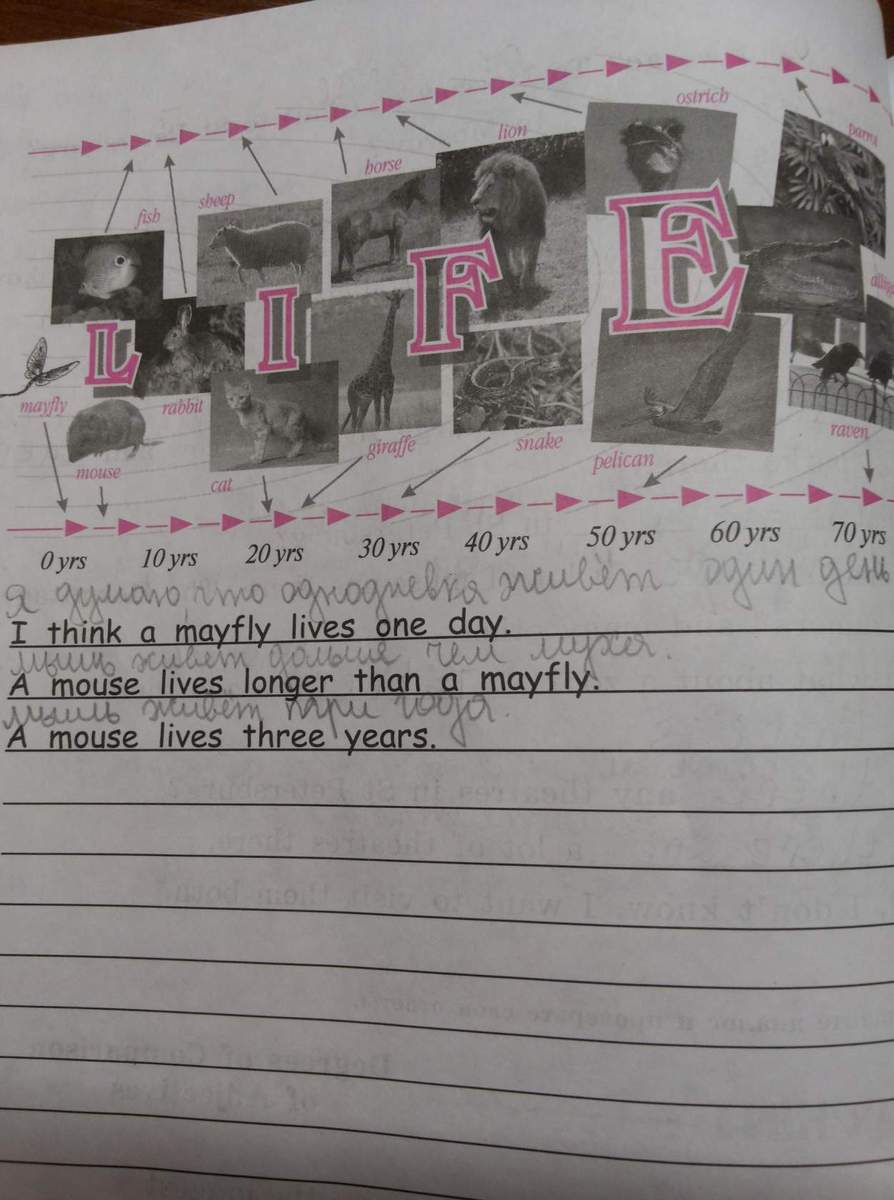 ostrich
parrot
lion
horse
sheep
fish
LIFE
mayfly
rabbit
mouse
cat
giraffe
snake
pelican
raven
0 yrs 10 yrs 20 yrs 30 yrs 40 yrs 50 yrs 60 yrs 70 yrs
Я думаю, что однодневка живёт один день
I think a mayfly lives one day.
мышь живёт дольше чем муха.
A mouse lives longer than a mayfly.
мышь живёт три года.
A mouse lives three years.